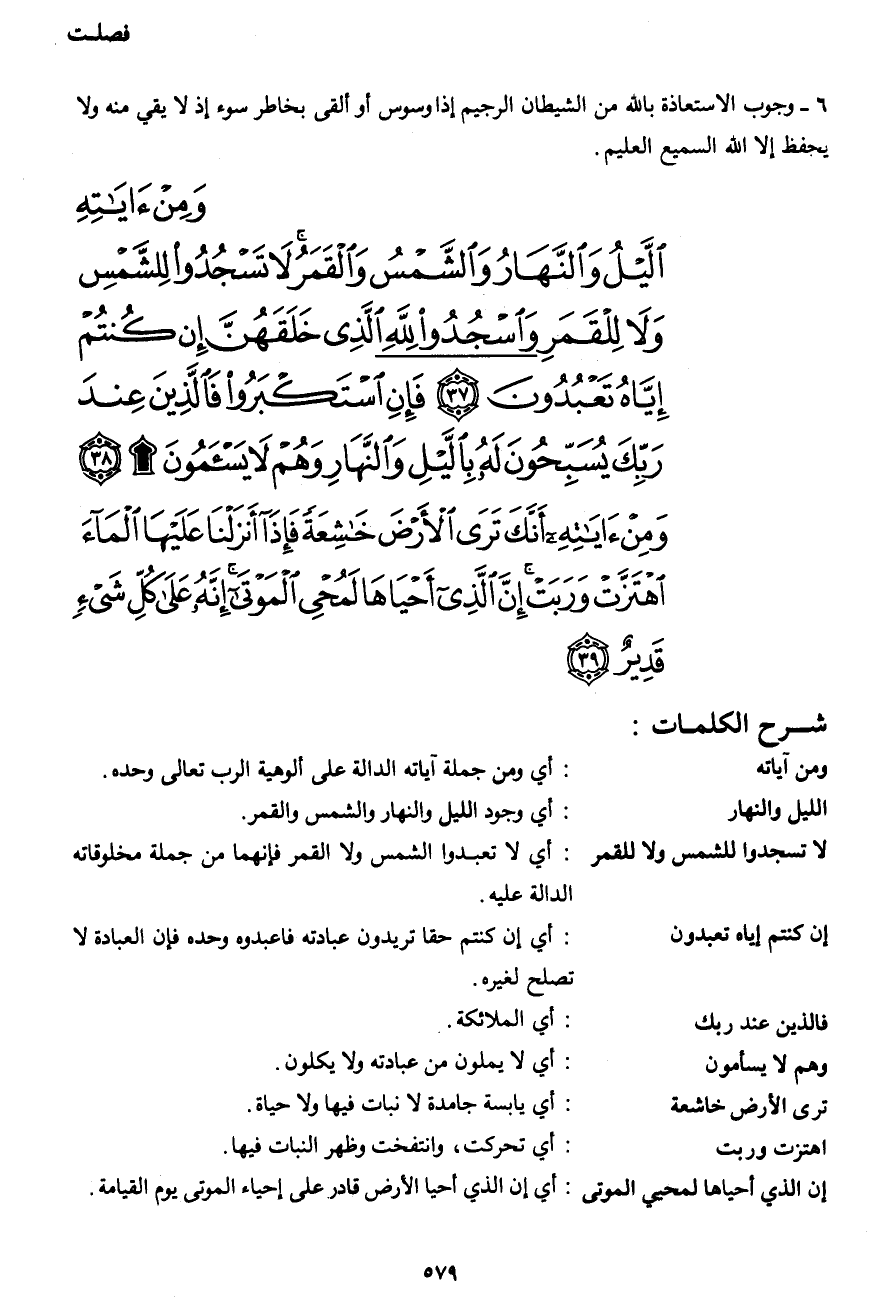 فصلـت
٦ ـ وجوب الاستعاذة بالله من الشيطان الرجيم إذا وسوس أو ألقى بخاطر سوء إذ لا يقي منه ولا
يحفظ إلا الله السميع العليم .
وَمِنْ ءَايَٰتِهِ
ٱلَّيْلُ وَٱلنَّهَارُ وَٱلشَّمْسُ وَٱلْقَمَرُۚ لَا تَسْجُدُوا۟ لِلشَّمْسِ
وَلَا لِلْقَمَرِ وَٱسْجُدُوا۟ لِلَّهِ ٱلَّذِى خَلَقَهُنَّ إِن كُنتُمْ
إِيَّاهُ تَعْبُدُونَ ﴿٣٧﴾ فَإِنِ ٱسْتَكْبَرُوا۟ فَٱلَّذِينَ عِندَ
رَبِّكَ يُسَبِّحُونَ لَهُۥ بِٱلَّيْلِ وَٱلنَّهَارِ وَهُمْ لَا يَسْـَٔمُونَ ۩ ﴿٣٨﴾
وَمِنْ ءَايَٰتِهِۦٓ أَنَّكَ تَرَى ٱلْأَرْضَ خَٰشِعَةً فَإِذَآ أَنزَلْنَا عَلَيْهَا ٱلْمَآءَ
ٱهْتَزَّتْ وَرَبَتْۚ إِنَّ ٱلَّذِىٓ أَحْيَاهَا لَمُحْىِ ٱلْمَوْتَىٰٓۚ إِنَّهُۥ عَلَىٰ كُلِّ شَىْءٍ
قَدِيرٌ ﴿٣٩﴾
شـرح الكلمـات :
ومن آياته : أي ومن جملة آياته الدالة على ألوهية الرب تعالى وحده .
الليل والنهار : أي وجود الليل والنهار والشمس والقمر .
لا تسجدوا للشمس ولا للقمر : أي لا تعبـدوا الشمس ولا القمر فإنهما من جملة مخلوقاته
الدالة عليه .
إن كنتم إياه تعبدون : أي إن كنتم حقا تريدون عبادته فاعبدوه وحده فإن العبادة لا
تصلح لغيره .
فالذين عند ربك : أي الملائكة .
وهم لا يسأمون : أي لا يملون من عبادته ولا يكلون .
ترى الأرض خاشعة : أي يابسة جامدة لا نبات فيها ولا حياة .
اهتزت وربت : أي تحركت، وانتفخت وظهر النبات فيها .
إن الذي أحياها لمحيي الموتى : أي إن الذي أحيا الأرض قادر على إحياء الموتى يوم القيامة .
٥٧٩